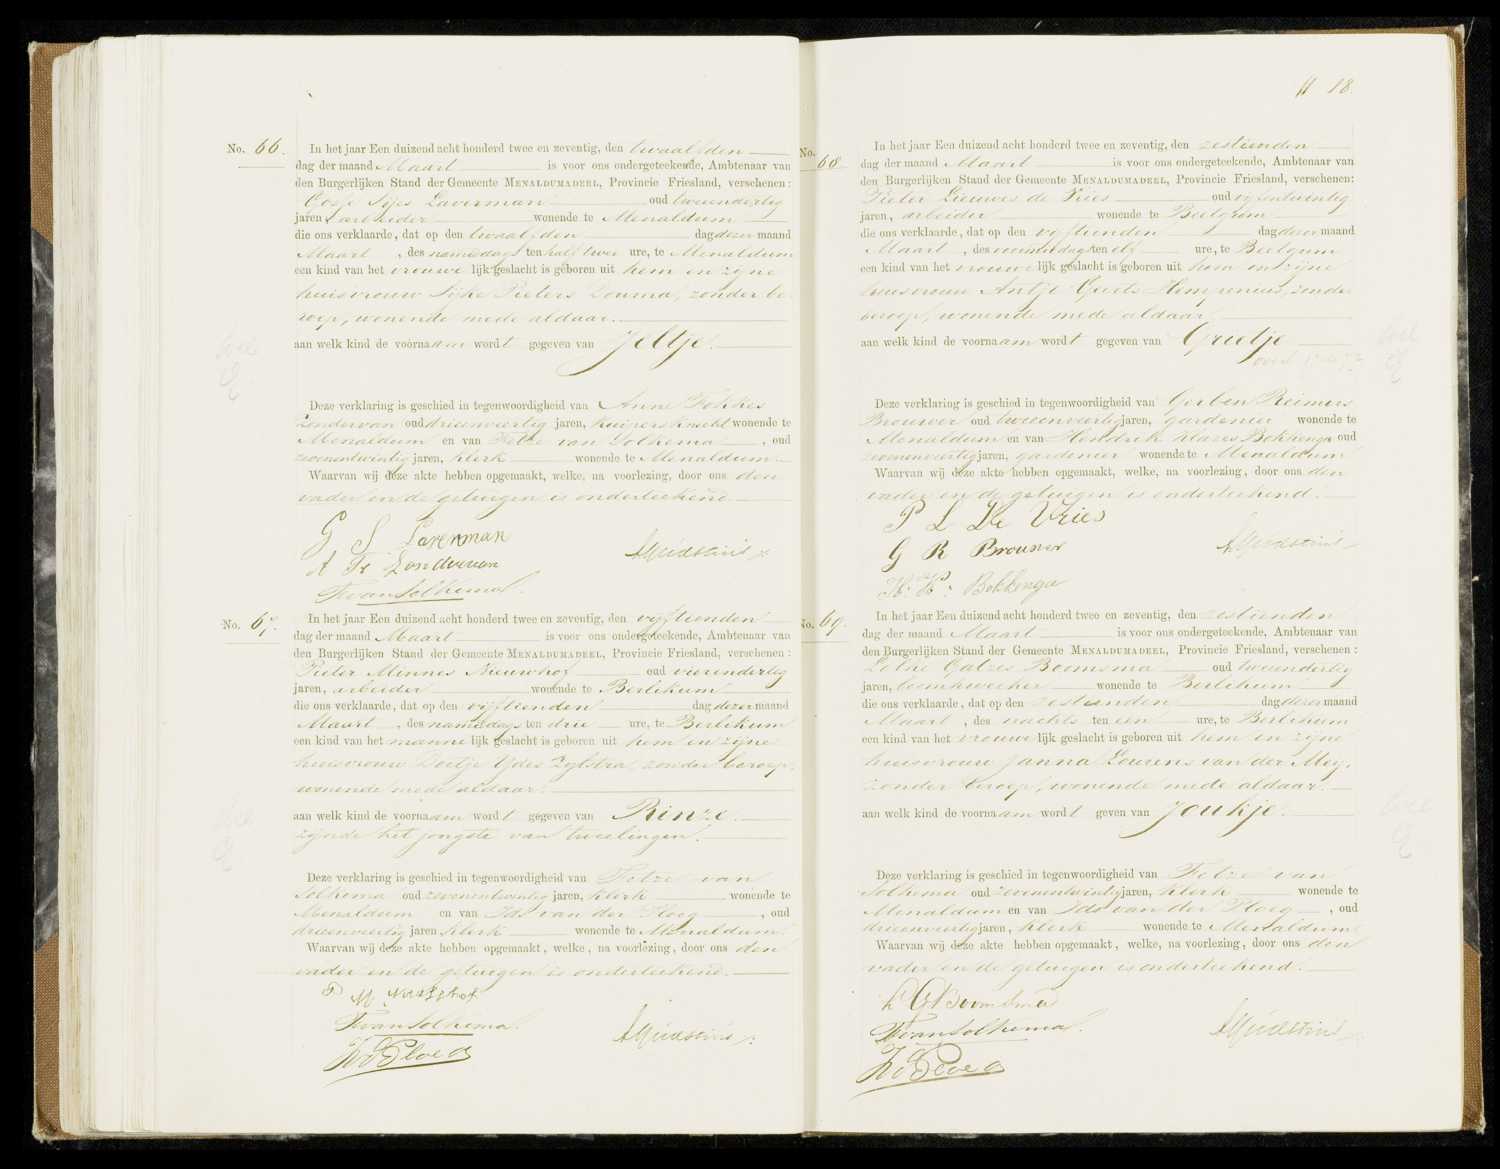 No. 66. In het jaar Een duizend acht honderd twee en zeventig, den twaalfden
dag der maand Maart is voor ons ondergeteekende, Ambtenaar van
den Burgerlijken Stand der Gemeente MENALDUMADEEL, Provincie Friesland, verschenen:
Gosse Sijes Laverman oud tweeendertig
jaren, arbeider wonende te Menaldum
die ons verklaarde, dat op den twaalfden dag dezer maand
Maart, des namiddags ten half twee ure, te Menaldum
een kind van het vrouwelijk geslacht is geboren uit hem en zijne
huisvrouw Sijke Pieters Douma, zonder be-
roep, wonende mede aldaar.
aan welk kind de voornaam wordt gegeven van Jeltje.
Deze verklaring is geschied in tegenwoordigheid van Anne Fokkes
Zondervan oud drieenveertig jaren, kuipersknecht wonende te
Menaldum en van Fetze van Solkema, oud
zevenentwintig jaren, klerk wonende te Menaldum.
Waarvan wij deze akte hebben opgemaakt, welke, na voorlezing, door ons den
vader en de getuigen is onderteekend.
G S Laverman
A F Zondervan
FvanSolkema.
No. 67. In het jaar Een duizend acht honderd twee en zeventig, den vijftienden
dag der maand Maart is voor ons ondergeteekende, Ambtenaar van
den Burgerlijken Stand der Gemeente MENALDUMADEEL, Provincie Friesland, verschenen:
Pieter Minnes Nieuwhof oud vierendertig
jaren, arbeider wonende te Berlikum
die ons verklaarde, dat op den vijftienden dag dezer maand
Maart, des namiddags ten drie ure, te Berlikum
een kind van het mannelijk geslacht is geboren uit hem en zijne
huisvrouw Doetje Ydes Zylstra, zonder beroep,
wonende mede aldaar.
aan welk kind de voornaam wordt gegeven van Rinze.
zijnde het jongste van tweelingen.
Deze verklaring is geschied in tegenwoordigheid van Fetze van
Solkema oud zevenentwintig jaren, klerk wonende te
Menaldum en van Ids van der Ploeg, oud
drieenveertig jaren klerk wonende te Menaldum.
Waarvan wij deze akte hebben opgemaakt, welke, na voorlezing, door ons den
vader en de getuigen is onderteekend.
P M Nieuwhof
FvanSolkema.
IvdPloeg
18
No. 68 In het jaar Een duizend acht honderd twee en zeventig, den zestienden
dag der maand Maart is voor ons ondergeteekende, Ambtenaar van
den Burgerlijken Stand der Gemeente MENALDUMADEEL, Provincie Friesland, verschenen:
Pieter Lieuwes de Vries oud vijfentwintig
jaren, arbeider wonende te Beetgum
die ons verklaarde, dat op den vijftienden dag dezer maand
Maart, des voormiddags ten elf ure, te Beetgum
een kind van het vrouwelijk geslacht is geboren uit hem en zijne
huisvrouw Antje Gerets Hempenius, zonder
beroep, wonende mede aldaar.
aan welk kind de voornaam wordt gegeven van Grietje
Deze verklaring is geschied in tegenwoordigheid van Gerben Reimers
Brouwer oud tweeenveertig jaren, gardenier wonende te
Menaldum en van Hendrik Klazes Bokkenga oud
zevenenveertig jaren, gardenier wonende te Menaldum
Waarvan wij deze akte hebben opgemaakt, welke, na voorlezing, door ons den
vader en de getuigen is onderteekend.
P L De Vries
G R Brouwer
H. K. Bokkenga
No. 69. In het jaar Een duizend acht honderd twee en zeventig, den zestienden
dag der maand Maart is voor ons ondergeteekende, Ambtenaar van
den Burgerlijken Stand der Gemeente MENALDUMADEEL, Provincie Friesland, verschenen:
Gatzes Boomsma oud tweeendertig
jaren, boomkweeker wonende te Berlikum
die ons verklaarde, dat op den zestienden dag dezer maand
Maart, des nachts ten een ure, te Berlikum
een kind van het vrouwelijk geslacht is geboren uit hem en zijne
huisvrouw Janna Lourens van der Mey,
zonder beroep, wonende mede aldaar.
aan welk kind de voornaam wordt geven van Joukje.
Deze verklaring is geschied in tegenwoordigheid van Fetze van
Solkema oud zevenentwintig jaren, klerk wonende te
Menaldum en van Ids van der Ploeg, oud
drieenveertig jaren, klerk wonende te Menaldum
Waarvan wij deze akte hebben opgemaakt, welke, na voorlezing, door ons den
vader en de getuigen is onderteekend.
L G Boomsma
FvanSolkema.
IvdPloeg